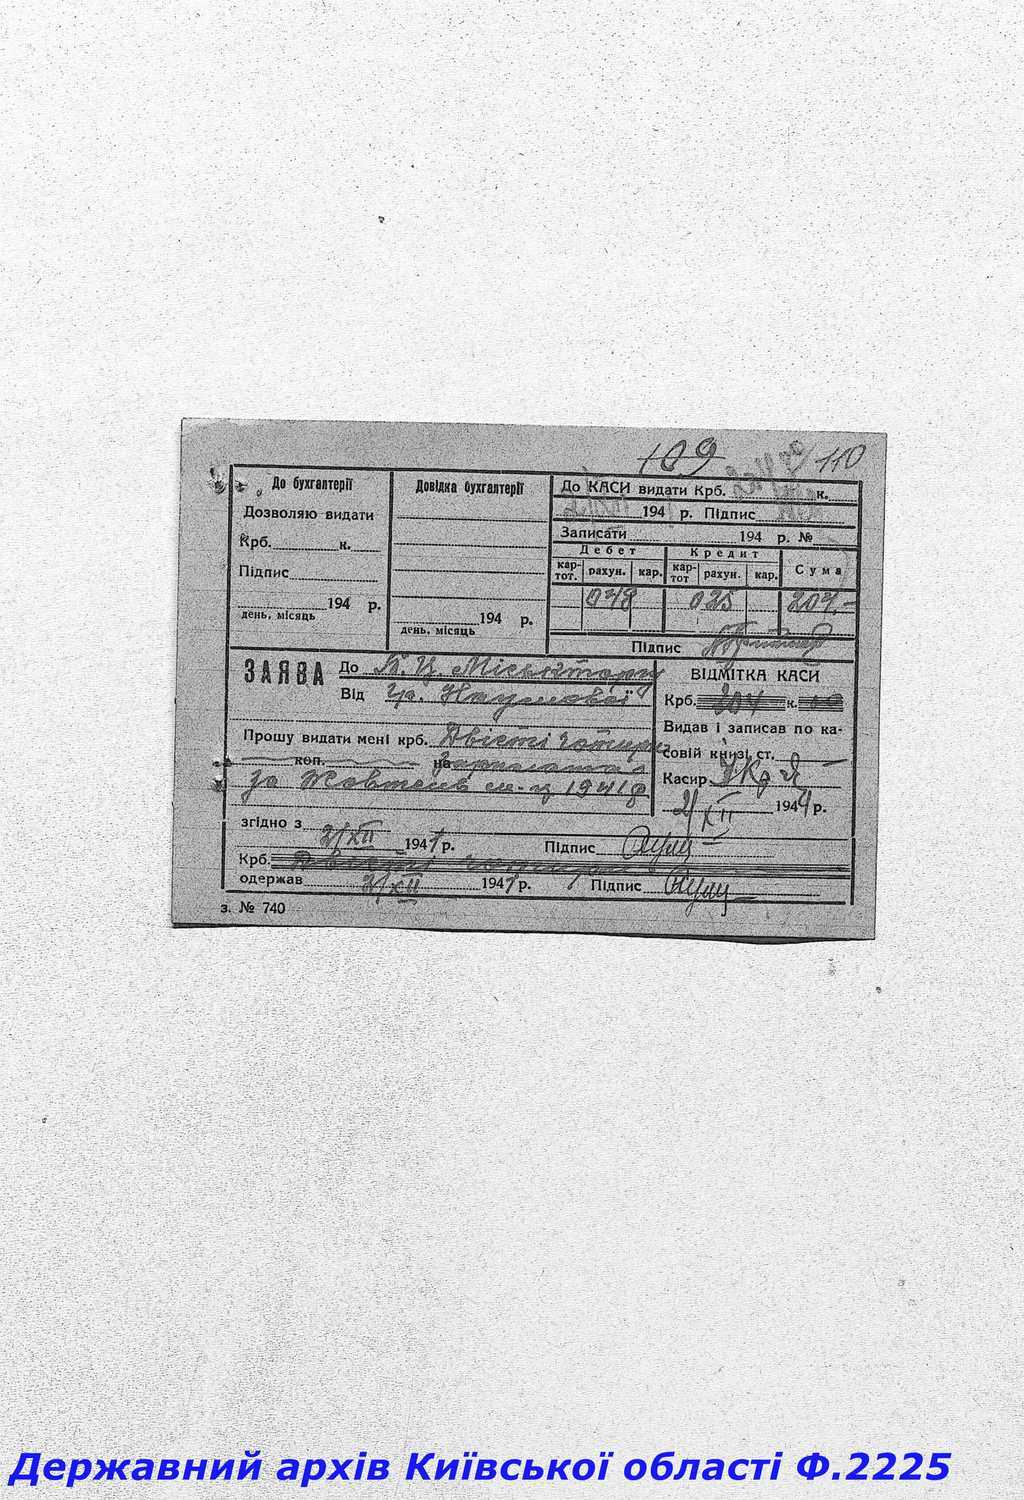 109 110
До бухгалтерії
Дозволяю видати
Крб. к.
Підпис
194 р.
день, місяць
Довідка бухгалтерії
194 р.
день, місяць
До КАСИ видати Крб. к.
194 р. Підпис
Записати 194 р. №
Дебет Кредит Сума
кар-тот. рахун. кар. кар-тот рахун. кар.
048 025 204.-
Підпис
ЗАЯВА До К.Ц. Міськторгу
Від гр. Наумової
Прошу видати мені крб. Двісті чотири
коп. на зарплата
за Жовтень м-ц 1941 р
ВІДМІТКА КАСИ
Крб. 204 к. 00
Видав і записав по ка-
совій книзі ст.
Касир
2/XII 1941 р.
згідно з
2/XII 1941 р. Підпис
Крб. Двісті чотири
одержав 2/XII 1941 р. Підпис
з. № 740
Державний архів Київської області Ф.2225